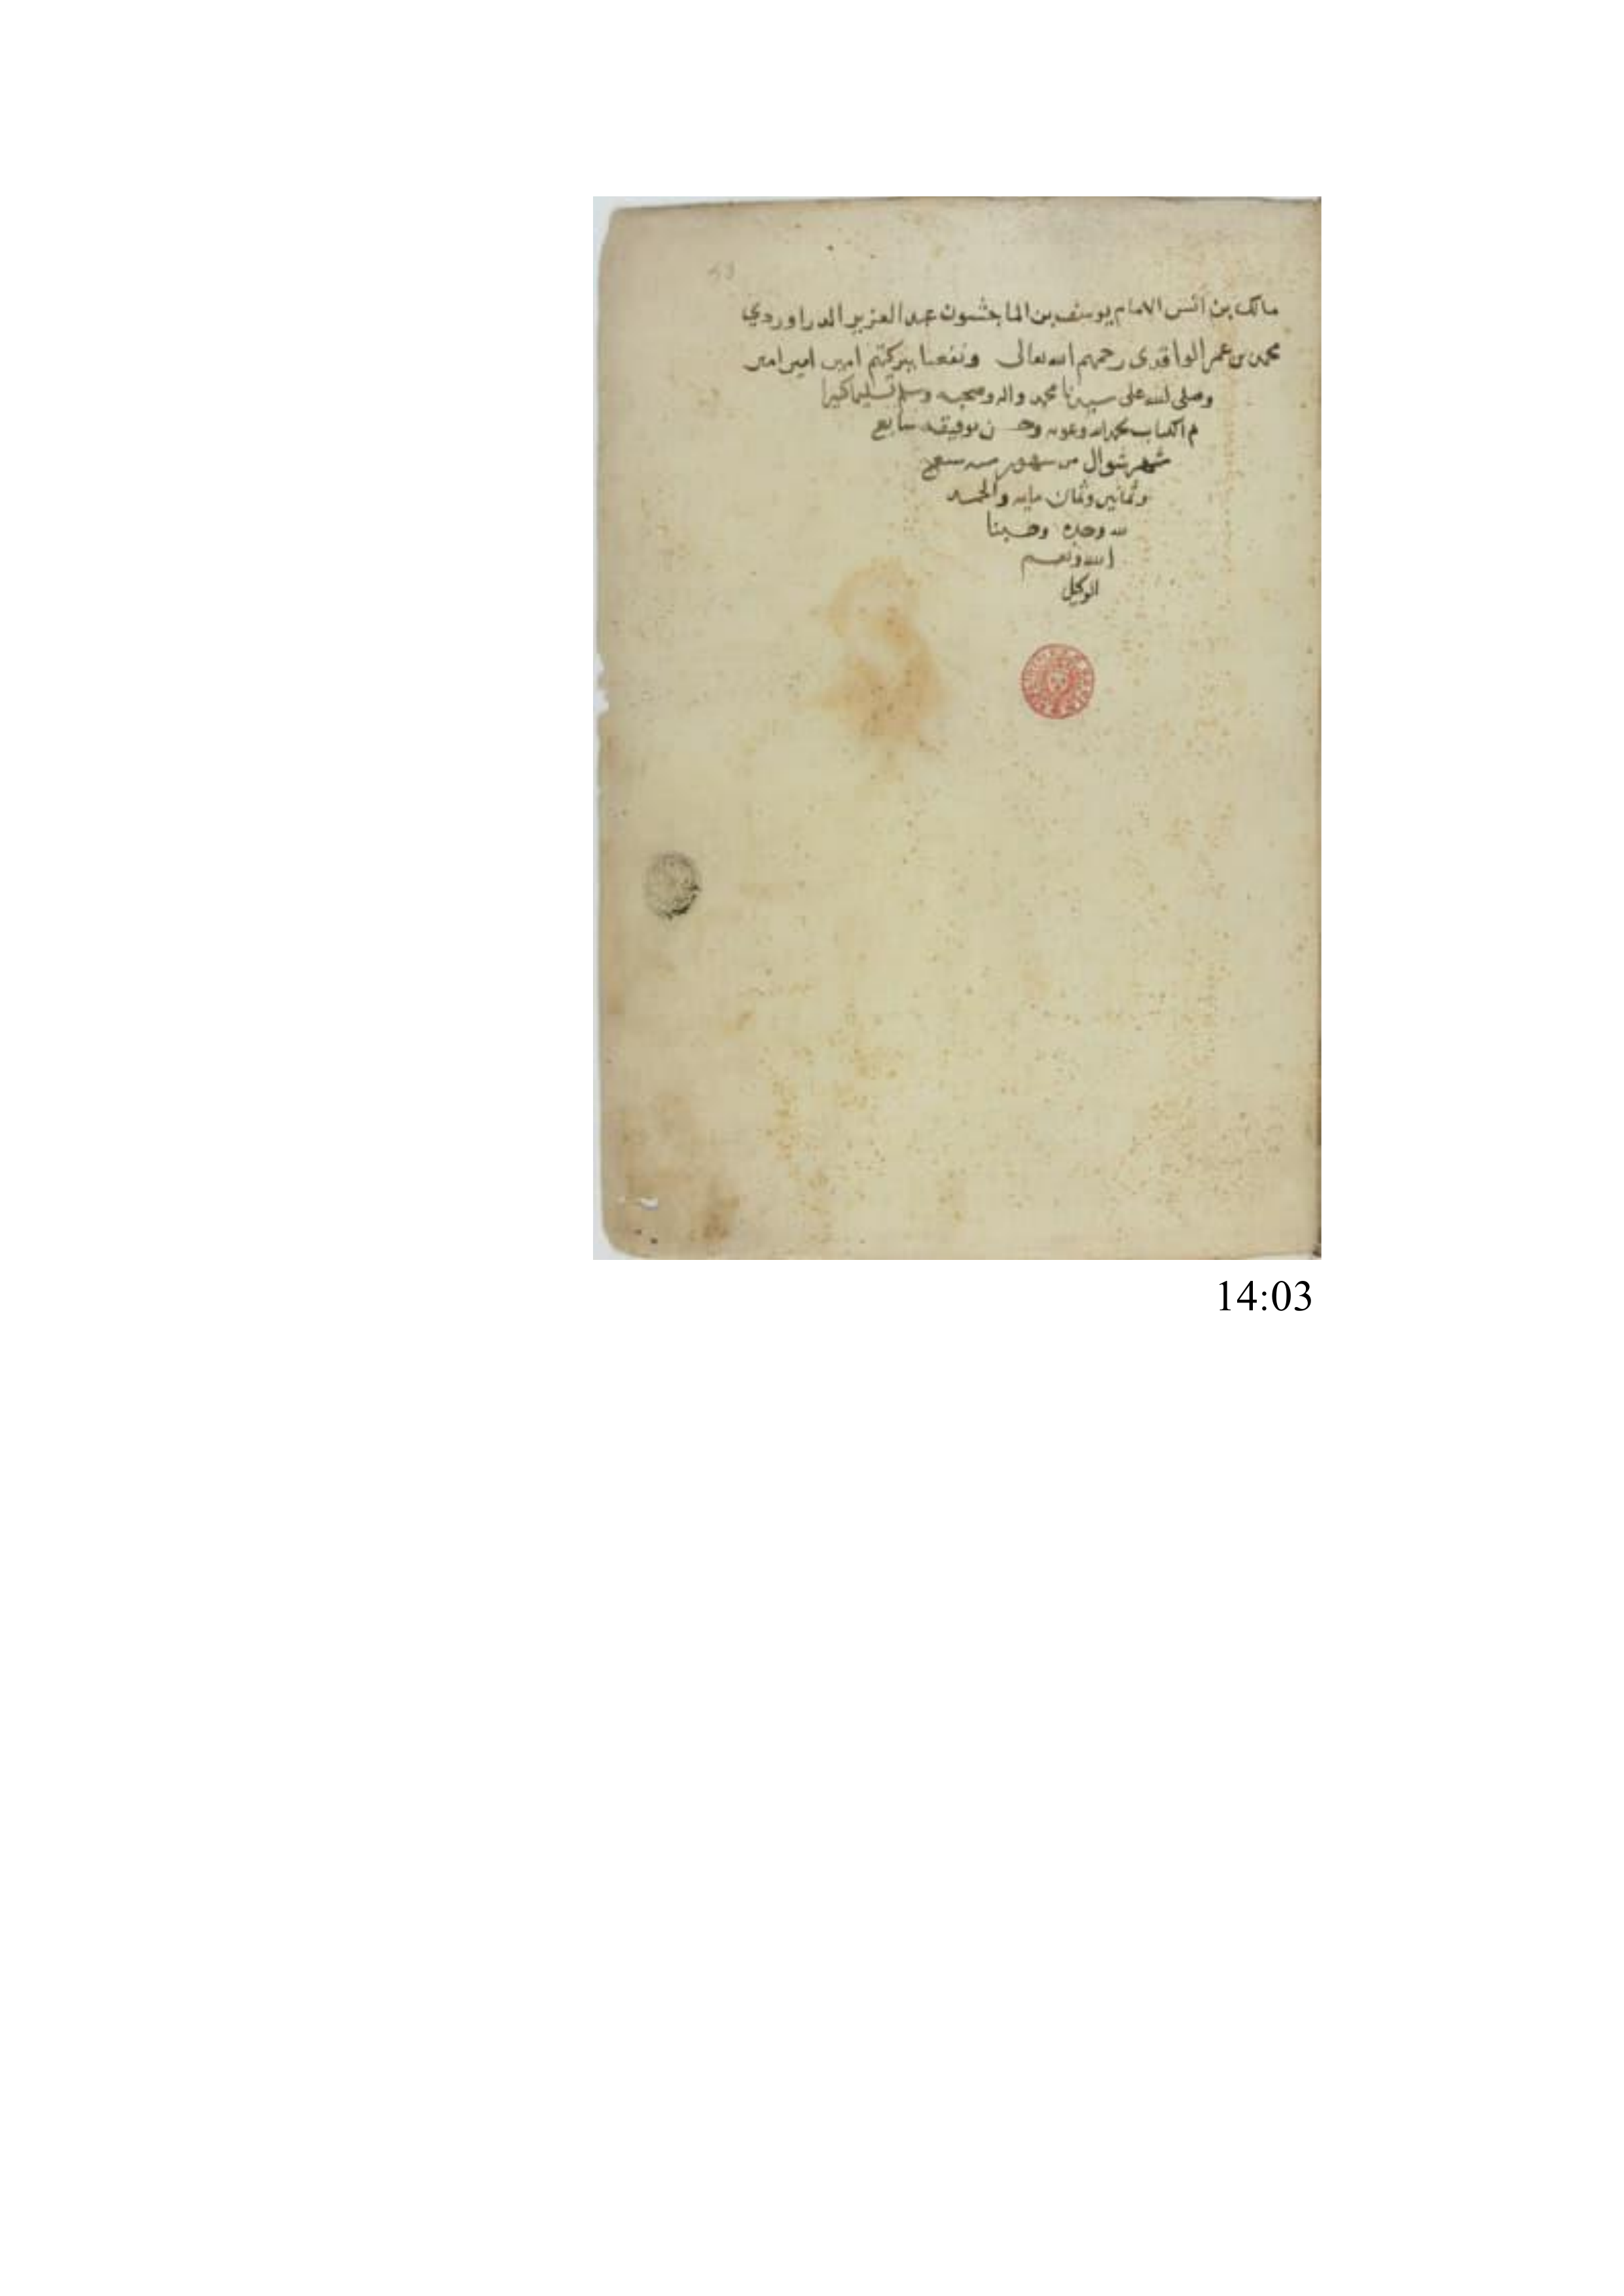 مالك بن انس الامام يوسف بن الماجشون عبد العزيز الدراوردي
محمد بن عمر الواقدى رحمهم الله تعالى ونفعنا ببركتهم امين امين امين
وصلى الله على سيدنا محمد واله وصحبه وسلم تسليما كثيرا
تم الكتاب بحمد الله وعونه وحسن توفيقه سابع
شهر شوال من شهور سنه سبع
وثمانين وثمان مايه والحمد
لله وحده وحسبنا
الله ونعم
الوكيل
14:03